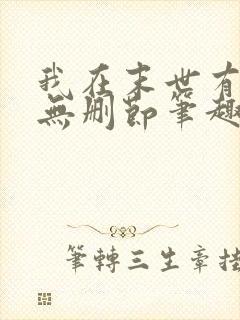 我在末世有
無刪節筆趣
筆轉三生章掛